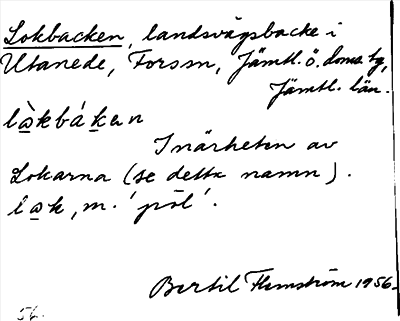 Lokbacken, landsvägsbacke i
Utanede, Forsm, Jämtl. ö. doms. tg,
Jämtl. län.
lo̲̊kbák̲en
I närheten av
Lokarna (se detta namn).
lo̲k, m. 'pöl'.
Bertil Flemström 1956.
56.